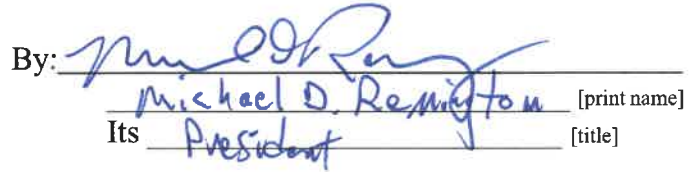 By:
Michael D. Remington [print name]
Its President [title]